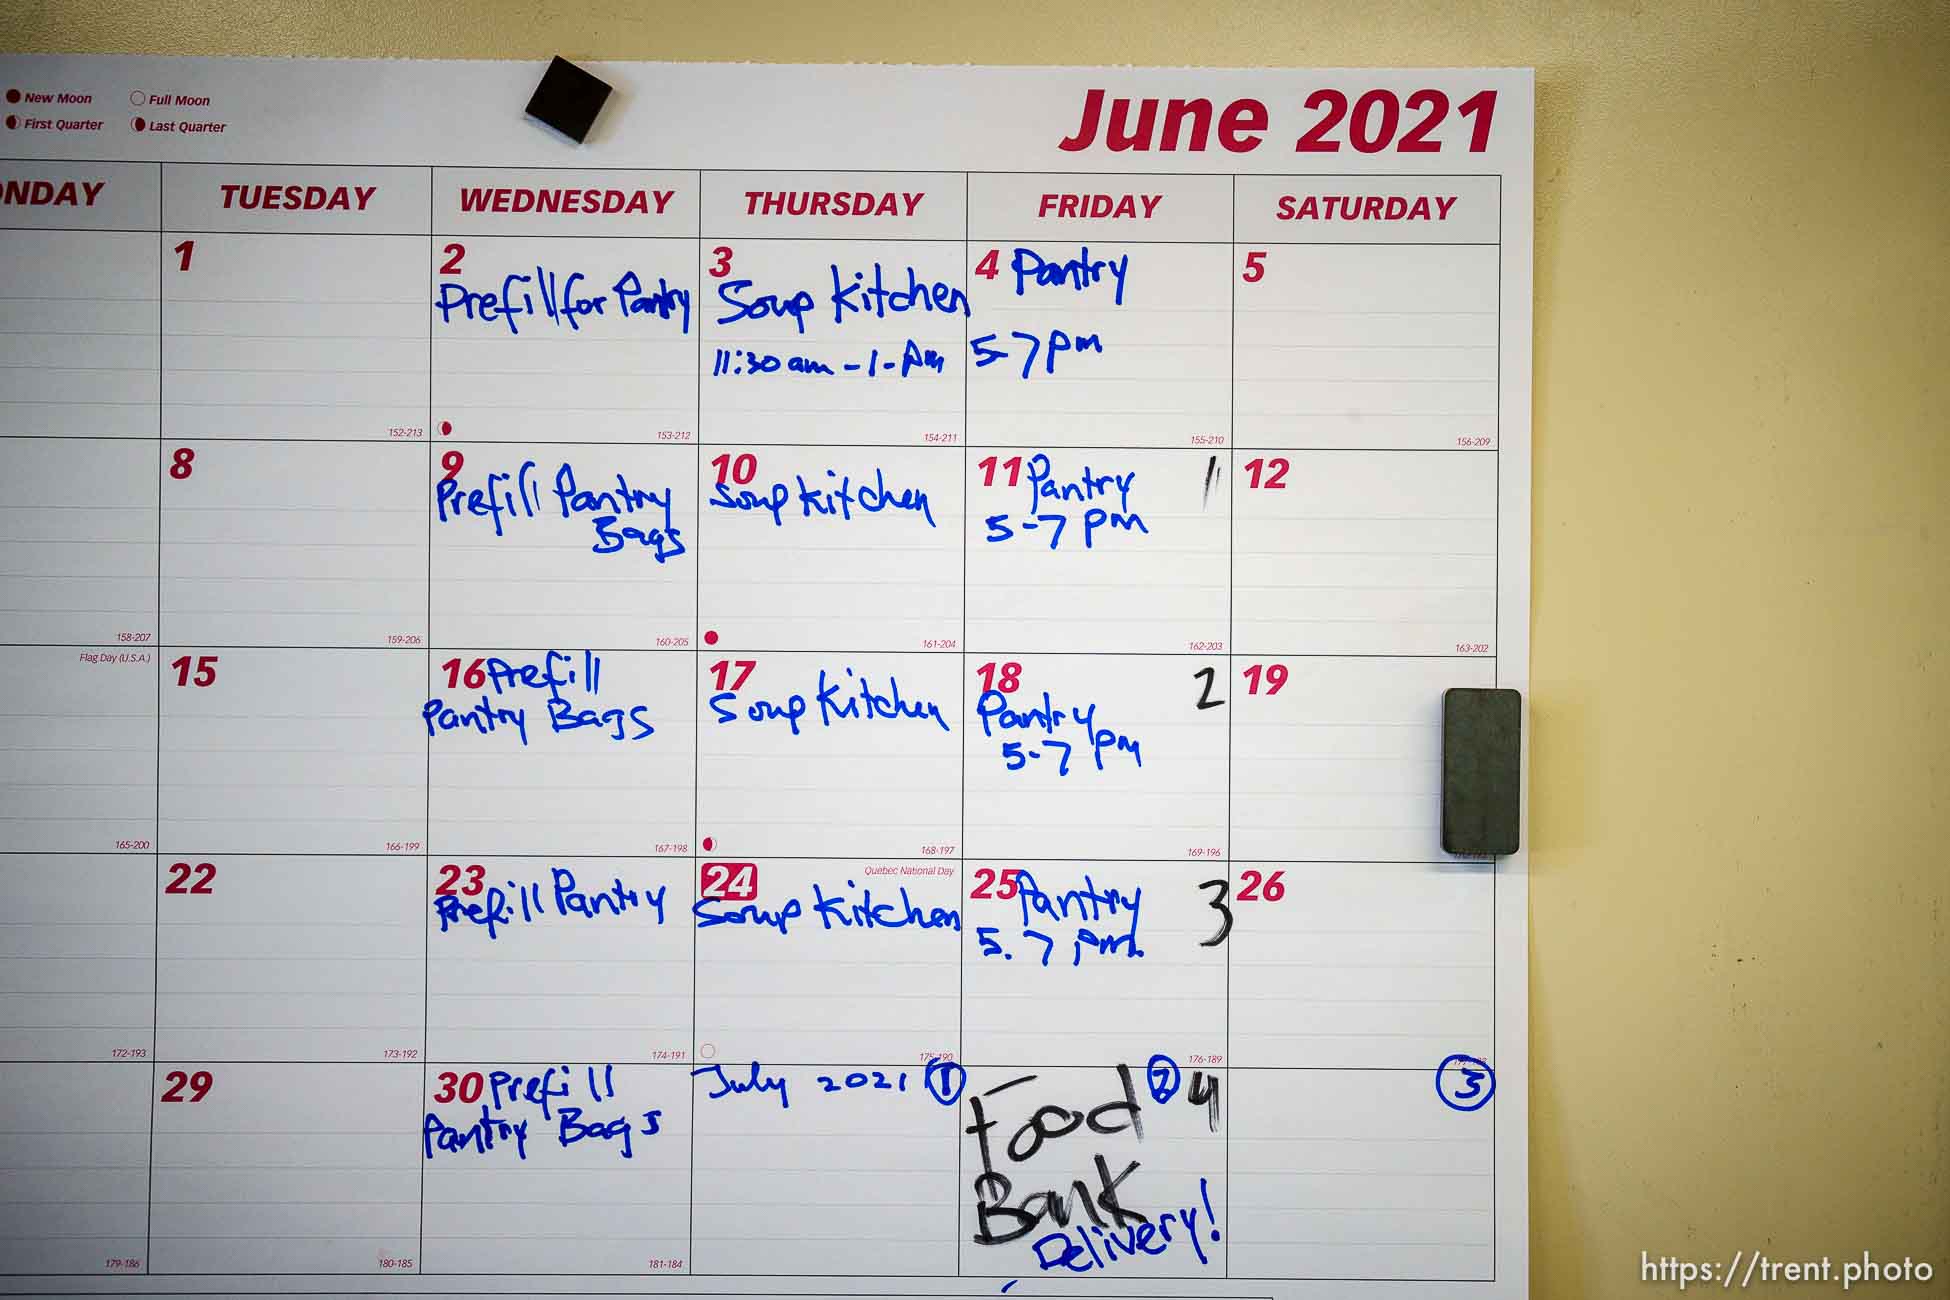 New Moon Full Moon
First Quarter Last Quarter
June 2021
ONDAY TUESDAY WEDNESDAY THURSDAY FRIDAY SATURDAY
1
152-213
2
Prefill for Pantry
153-212
3
Soup Kitchen
11:30 am - 1 - Pm
154-211
4 Pantry
5-7 pm
155-210
5
156-209
158-207
8
159-206
9
Prefill Pantry
Bags
160-205
10
Soup Kitchen
161-204
11 Pantry 1
5-7 pm
162-203
12
163-202
Flag Day (U.S.A.)
165-200
15
166-199
16 Prefill
Pantry Bags
167-198
17
Soup Kitchen
168-197
18 2
Pantry
5-7 pm
169-196
19
172-193
22
173-192
23
Prefill Pantry
174-191
24 Quebec National Day
Soup Kitchen
175-190
25 Pantry 3
5. 7 pm.
176-189
26
179-186
29
180-185
30 Prefill
Pantry Bags
181-184
July 2021 1
2 4
Food
Bank
Delivery!
3
https://trent.photo